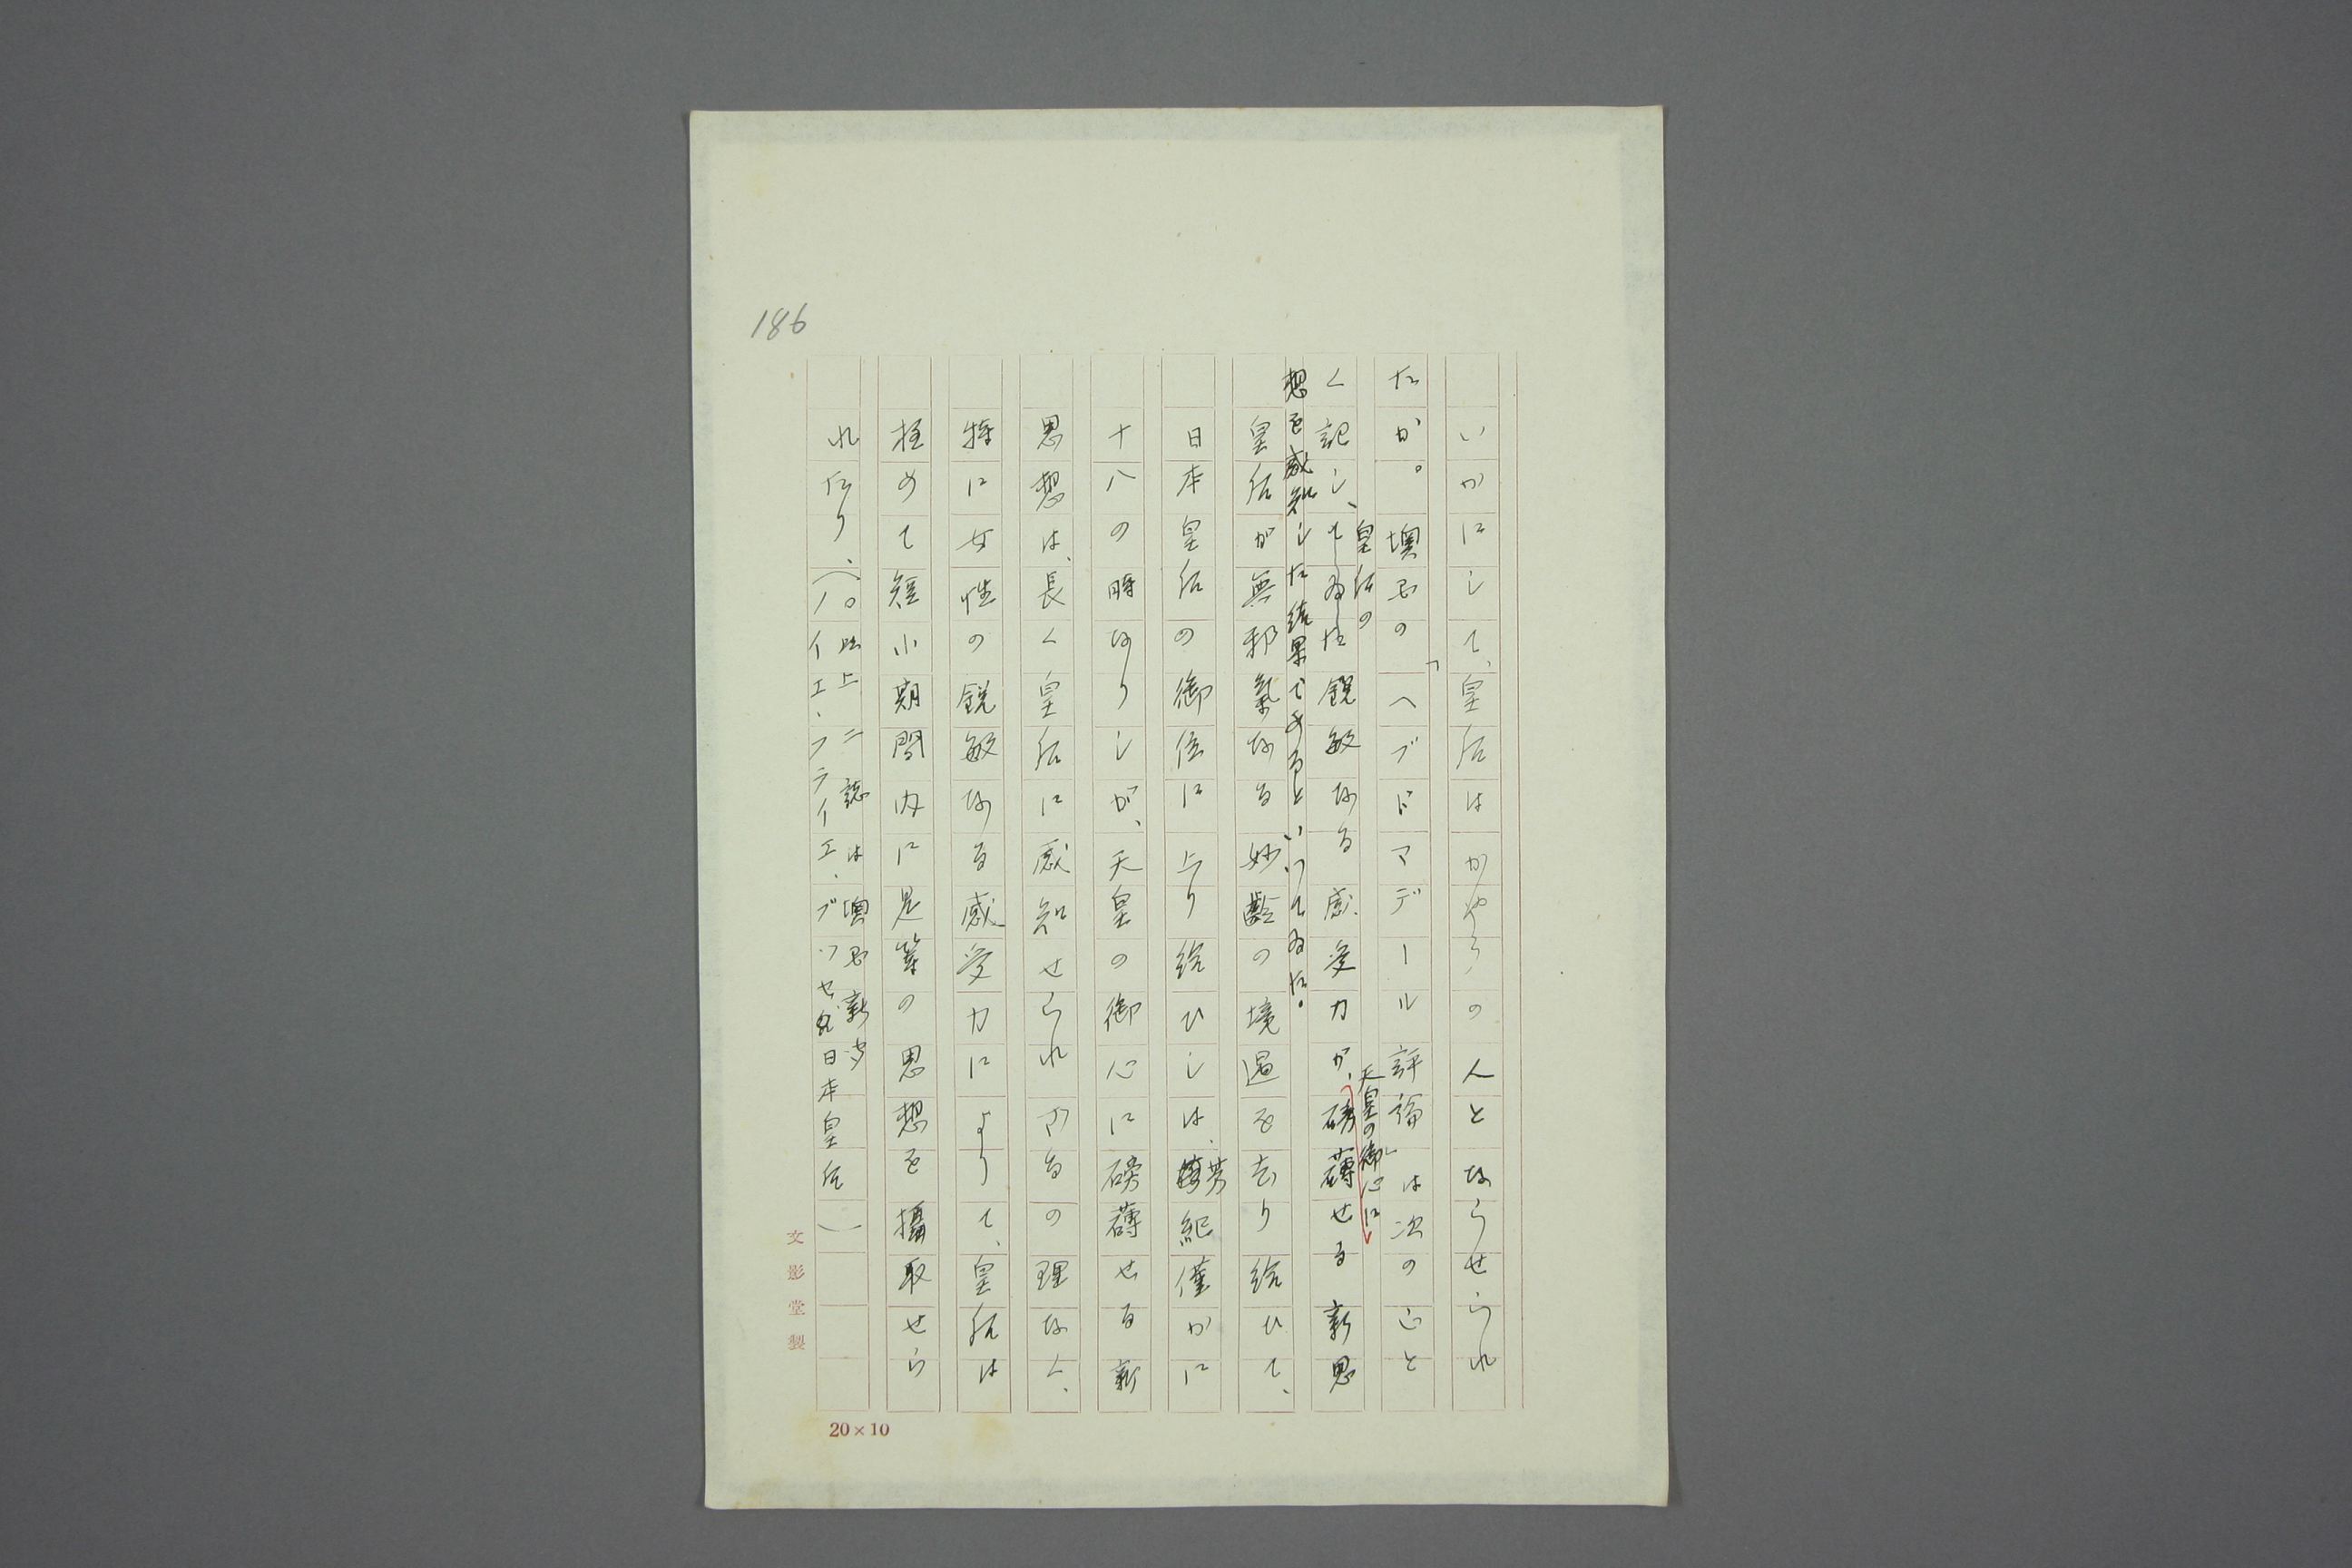 186
いかにして、皇后はかやうの人とならせられ
たか。墺国の「ヘブドマデール評論は次のごと
皇后の
天皇の御心に
く記し、てゐた鋭敏なる感受力が、磅礴せる新思
想を感知した結果であるといつてゐた。
皇后が無邪氣なる妙齢の境遇を去り給ひて、
日本皇后の御位に上り給ひしは、芳紀僅かに
十八の時なりしが、天皇の御心に磅礴せる新
思想は、長く皇后に感知せられざるの理なく、
特に女性の鋭敏なる感受力によりて、皇后は
極めて短小期間内に是等の思想を攝取せら
れたり。(以上二誌は墺国新
ノイエ、フライエ、プツセ、日本皇后)
文影堂製
20×10